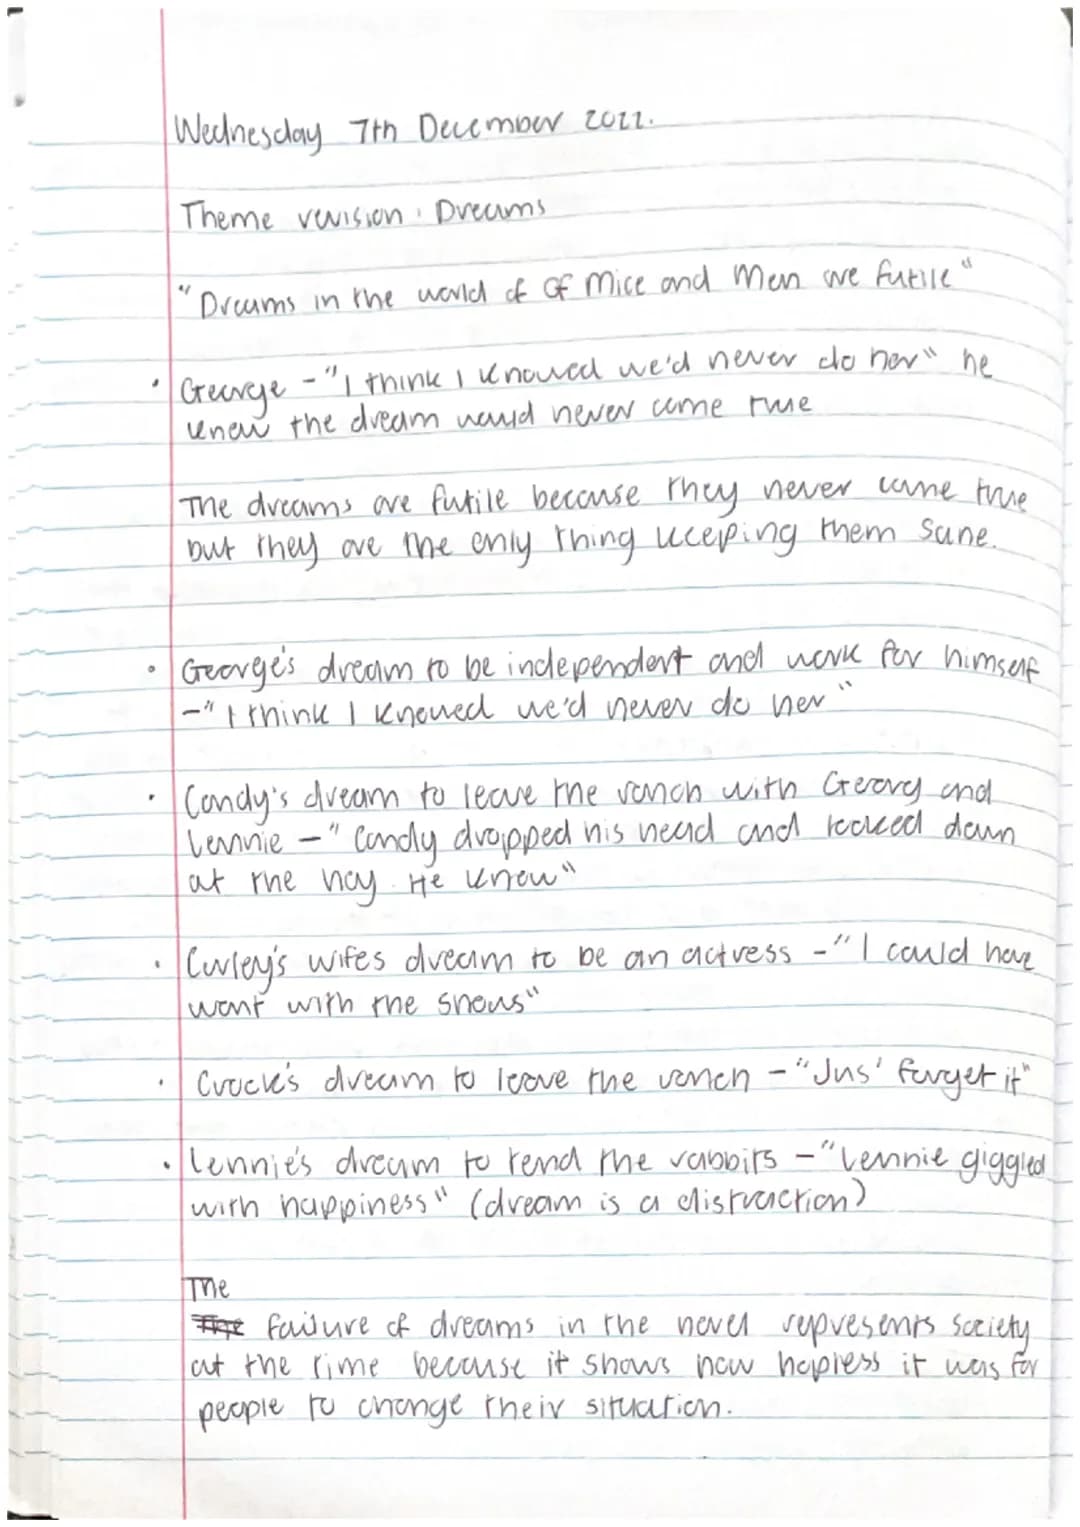 Wednesday 7th December 2022.
Theme revision : Dreams
"Dreams in the world of Of Mice and Men are futile"
• George - "I think I knowed we'd never do her" he
knew the dream would never come true
The dreams are futile because they never came true
but they are the only thing keeping them sane.
• George's dream to be independent and work for himself
- "I think I knowed we'd never do her"
• Candy's dream to leave the ranch with Georg and
Lennie - "Candy dropped his head and looked down
at the hay. He knew"
• Curley's wifes dream to be an actress - "I could have
went with the shows"
• Crook's dream to leave the ranch - "Jus' forget it"
• Lennie's dream to tend the rabbits - "Lennie giggled
with happiness" (dream is a distraction)
The
The failure of dreams in the novel represents society
at the time because it shows how hopless it was for
people to change their situation.